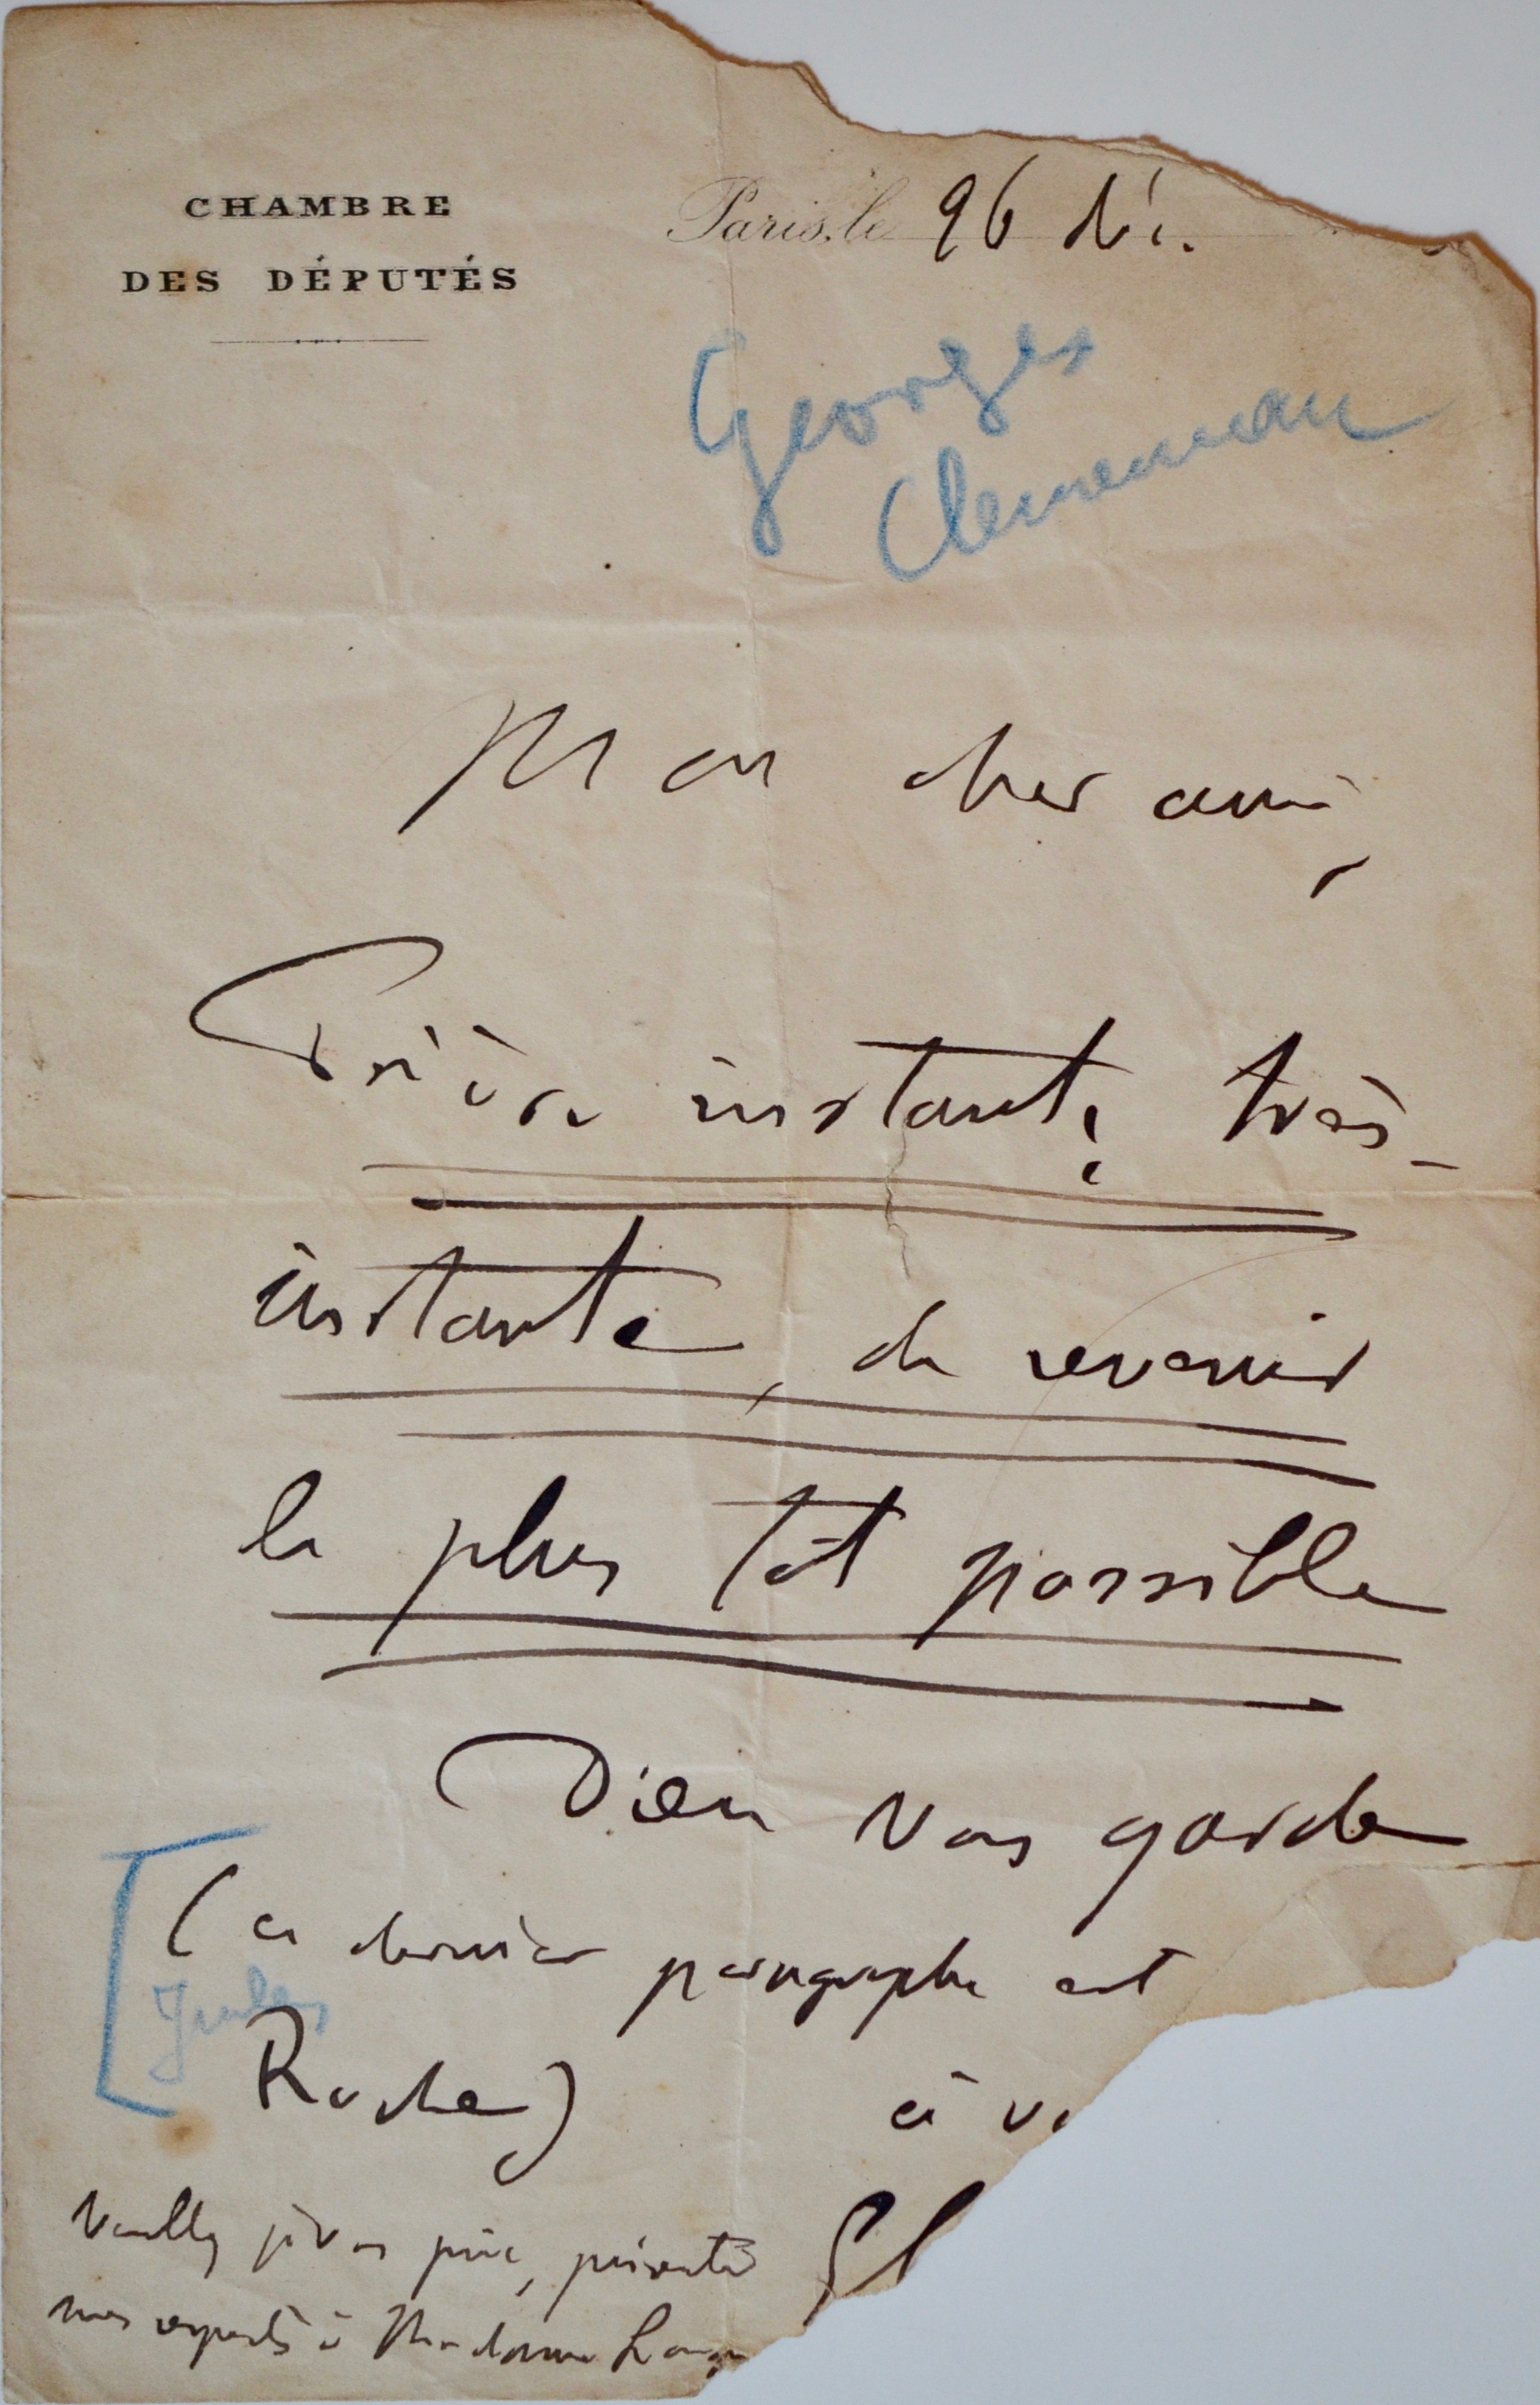 CHAMBRE
DES DÉPUTÉS
Paris, le 26 déc.
Georges
Clemenceau
Mon cher ami,
Prière instante, très-
instante, de revenir
le plus tôt possible
Dieu vous garde
(ce dernier paragraphe est
Jules
Roche)
à v
veuillez je vous prie, présenter
mes respects à Madame